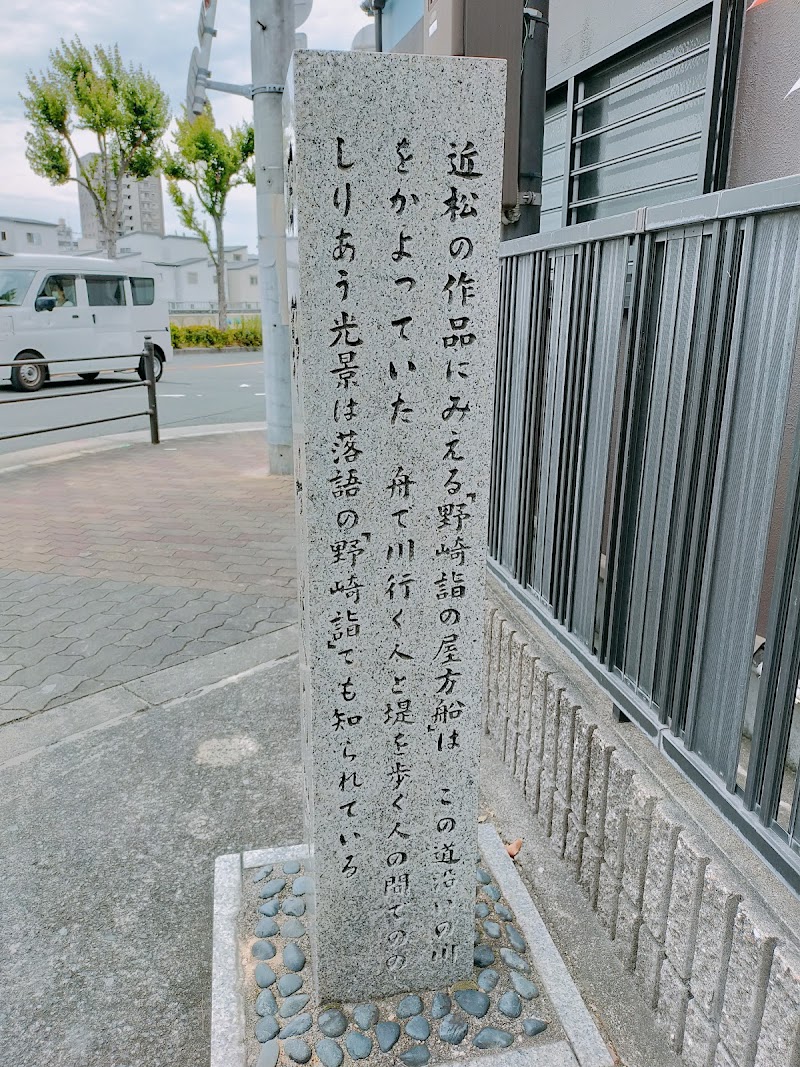 近松の作品にみえる「野崎詣の屋方船」は　この道沿いの川
をかよっていた　舟で川行く人と堤を歩く人の間でのの
しりあう光景は落語の「野崎詣」でも知られている